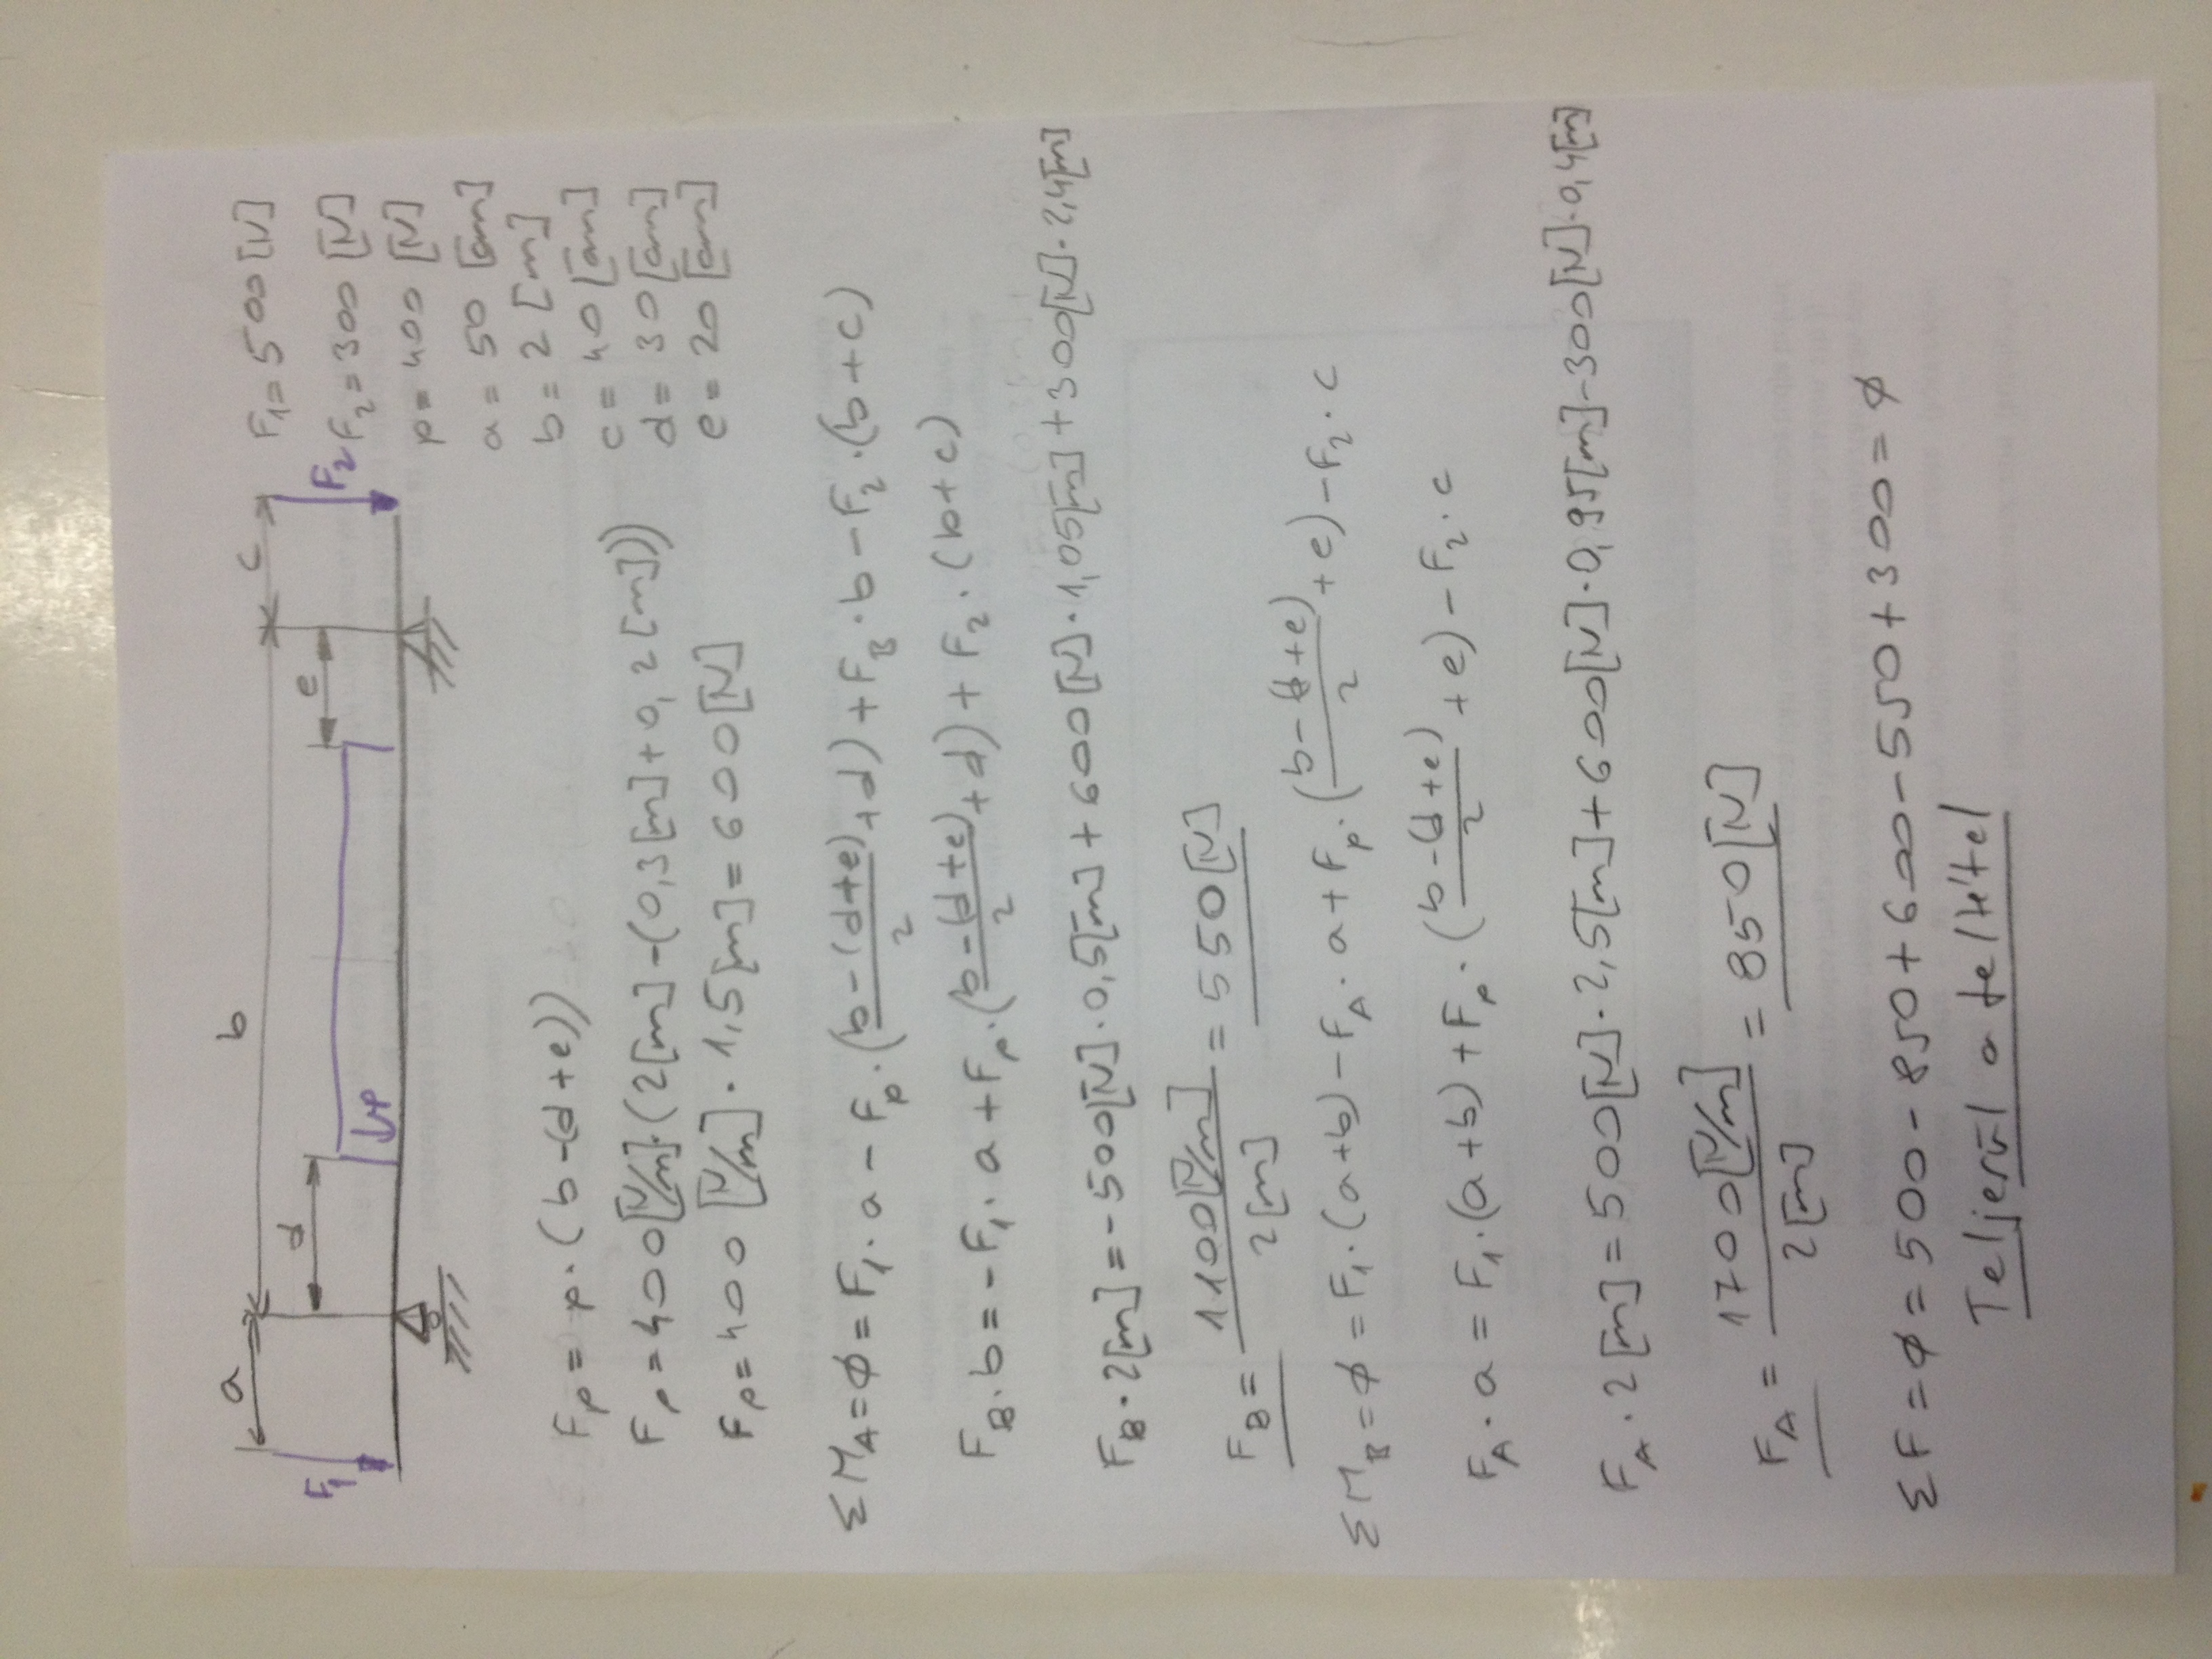 a b c
F₁=500[N]
d e F₂ F₂=300[N]
F₁ ↓p p=400[N]
a=50[cm]
b=2[m]
c=40[cm]
d=30[cm]
e=20[cm]
Fp=p·(b-(d+e))
Fp=400[N/m]·(2[m]-(0,3[m]+0,2[m]))
Fp=400[N/m]·1,5[m]=600[N]
ΣM_A=ø=F₁·a-Fp·((b-(d+e))/2+d)+F_B·b-F₂·(b+c)
F_B·b=-F₁·a+Fp·((b-(d+e))/2+d)+F₂·(b+c)
F_B·2[m]=-500[N]·0,5[m]+600[N]·1,05[m]+300[N]·2,4[m]
F_B=1100[N/m]/2[m]=550[N]
ΣM_B=ø=F₁·(a+b)-F_A·a+Fp·((b-(d+e))/2+e)-F₂·c
F_A·a=F₁·(a+b)+Fp·((b-(d+e))/2+e)-F₂·c
F_A·2[m]=500[N]·2,5[m]+600[N]·0,95[m]-300[N]·0,4[m]
F_A=1700[N/m]/2[m]=850[N]
ΣF=ø=500-850+600-550+300=ø
Teljesül a feltétel